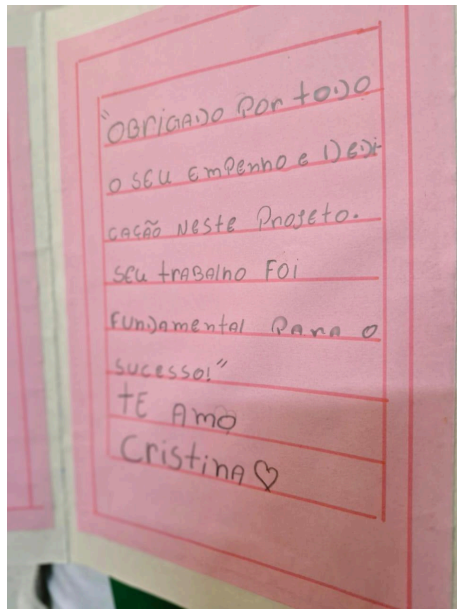 "OBRIGADO POR TODO
O SEU EMPENHO E DEDI
CAÇÃO NESTE PROJETO.
SEU TRABALHO FOI
FUNDAMENTAL PARA O
SUCESSO!"
TE AMO
CRISTINA♡